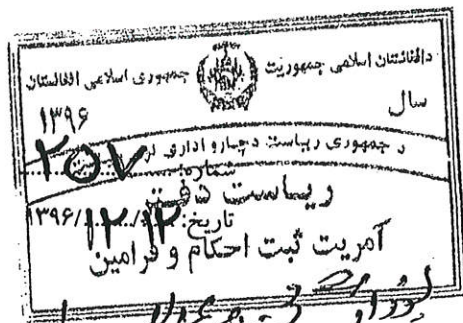 دافغانستان اسلامی جمهوریت جمهوری اسلامی افغانستان
سال ۱۳۹۶
د جمهوری ریاست دچارو اداری
شماره: ۲۵۷
ریاست دفتر
تاریخ: ۱۲/۱۲/۱۳۹۶
آمریت ثبت احکام و فرامین